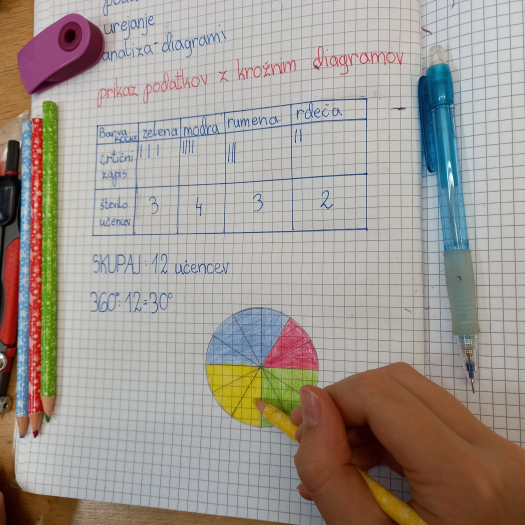 urejanje
analiza-diagrami
prikaz podatkov z krožnim diagramov
Barva zelena modra rumena rdeča
črtični zapis ||| |||| ||| ||
število učencev 3 4 3 2
SKUPAJ: 12 učencev
360°:12=30°